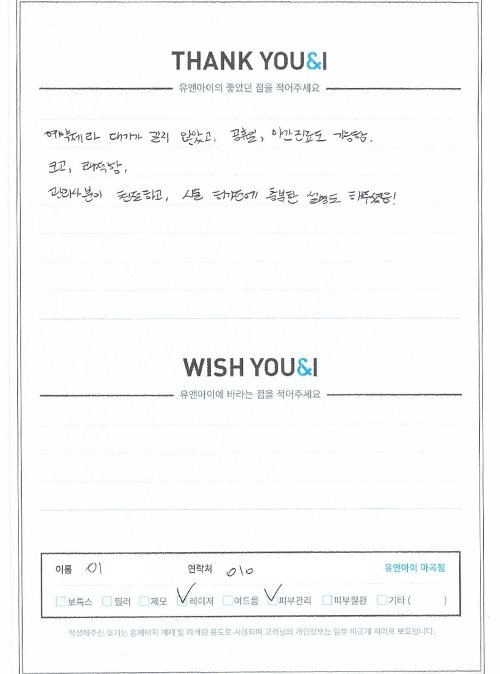 THANK YOU&I
유앤아이의 좋았던 점을 적어주세요
예약제라 대기가 길지 않았고, 공휴일, 야간진료도 가능함.
크고, 쾌적함.
관리사분이 친절하고, 시술 하기전에 충분한 설명도 해주셨음!
WISH YOU&I
유앤아이에 바라는 점을 적어주세요
이름 이 연락처 010 유앤아이 마곡점
보톡스 필러 제모 레이저 여드름 피부관리 피부질환 기타 ( )
작성해주신 후기는 홈페이지 게재 및 마케팅 용도로 사용되며 고객님의 개인정보는 일부 비공개 처리로 보호됩니다.